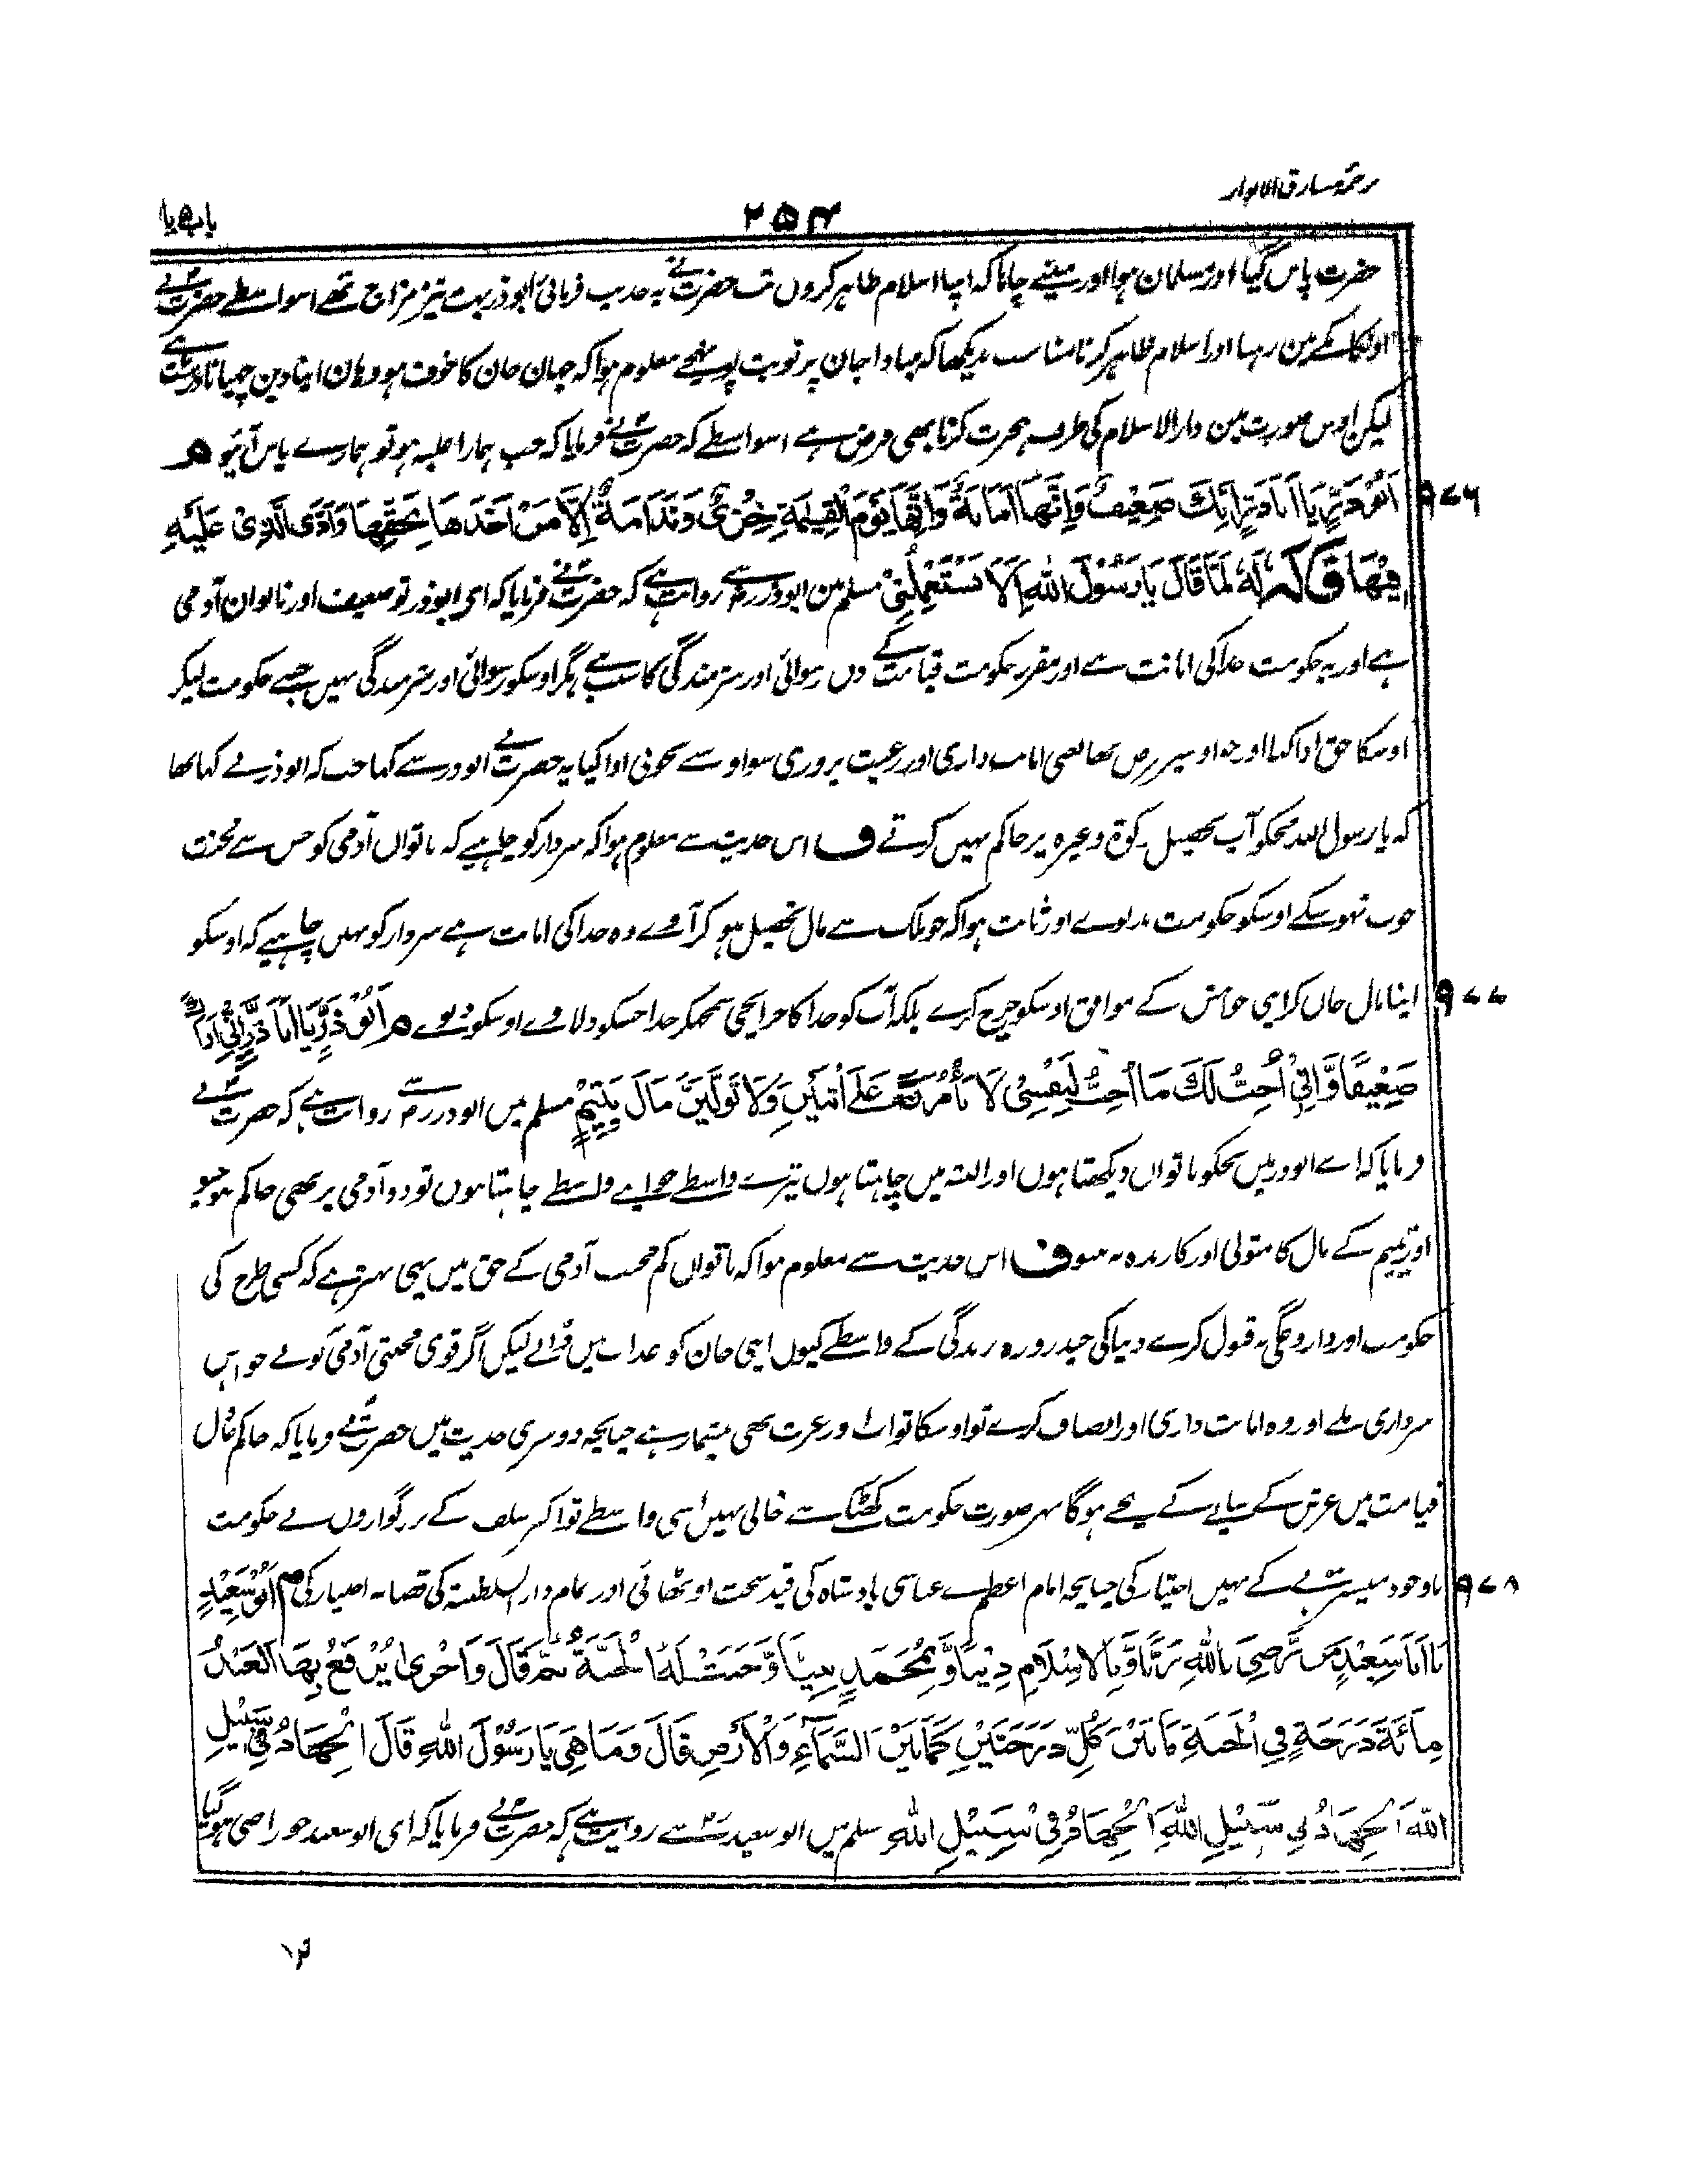 ترجمۂ مشارق الانوار
۲۵۴
باب یا
حضرت پاس گیا اور مسلمان ہوا اور مینے چاہا کہ اپنا اسلام ظاہر کروں تب حضرت نے یہ حدیث فرمائی ابوذر بہت تیز مزاج تھے اسواسطے حضرت نے
اونکا مکے مین رہنا اور اسلام ظاہر کرنا مناسب ندیکھا کہ مبادا جان پر نوبت پہنچے معلوم ہوا کہ جہان جان کا خوف ہو وہان اپنا دین چھپانا درست ہے
لیکن اوس صورت مین دار الاسلام کی طرف ہجرت کرنا بھی فرض ہے اسواسطے کہ حضرت نے فرمایا کہ جب ہمارا غلبہ ہو تو ہمارے پاس آئیو م
۹۷۶
اَبُوْ ذَرٍّ يَا اَبَا ذَرٍّ اِنَّكَ ضَعِيْفٌ وَاِنَّهَا اَمَانَةٌ وَاِنَّهَا يَوْمَ الْقِيٰمَةِ خِزْىٌ وَنَدَامَةٌ اِلَّا مَنْ اَخَذَهَا بِحَقِّهَا وَاَدَّى الَّذِىْ عَلَيْهِ
فِيْهَا قَالَهٗ لَهٗ لَمَّا قَالَ يَا رَسُوْلَ اللّٰهِ اَلَا تَسْتَعْمِلُنِىْ مسلم مین ابوذر رض سے روایت ہے کہ حضرت نے فرمایا کہ ای ابوذر تو ضعیف اور ناتوان آدمی
ہے اور یہ حکومت خدا کی امانت ہے اور مقرر حکومت قیامت کے دن رسوائی اور شرمندگی کا سبب ہے مگر اوسکو رسوائی اور شرمندگی نہیں جسنے حکومت لیکر
اوسکا حق ادا کیا اور جو اوسپر فرض تھا یعنی امانت داری اور رعیت پروری سو اوسے بخوبی ادا کیا یہ حضرت نے ابوذر سے کہا جب کہ ابوذر نے کہا تھا
کہ یا رسول اللہ مجکو آپ تحصیل زکوۃ وغیرہ پر حاکم نہیں کرتے ف اس حدیث سے معلوم ہوا کہ سردار کو چاہیے کہ ناتواں آدمی کو جس سے محنت
خوب نہوسکے اوسکو حکومت ندلوے اور ثابت ہوا کہ جو ملک سے مال تحصیل ہو کر آوے وہ خدا کی امانت ہے سردار کو نہیں چاہیے کہ اوسکو
۹۷۷
اپنا مال جان کر اپنی خواہش کے موافق اوسکو خرچ کرے بلکہ آپ کو خدا کا خزانچی سمجھکر خدا جسکو دلاوے اوسکو دیوے م اَبُوْ ذَرٍّ يَا اَبَا ذَرٍّ اِنِّىْ اَرَاكَ
ضَعِيْفًا وَّاِنِّىْ اُحِبُّ لَكَ مَا اُحِبُّ لِنَفْسِىْ لَا تَأْمُرَنَّ عَلَى اثْنَيْنِ وَلَا تَوَلَّيَنَّ مَالَ يَتِيْمٍ مسلم میں ابوذر رض سے روایت ہے کہ حضرت نے
فرمایا کہ اے ابوذر میں تجکو ناتواں دیکھتا ہوں اور البتہ میں چاہتا ہوں تیرے واسطے جو اپنے واسطے چاہتا ہوں تو دو آدمی پر بھی حاکم نہ ہوجیو
اور یتیم کے مال کا متولی اور کارندہ نہ ہو ف اس حدیث سے معلوم ہوا کہ ناتواں کم محنت آدمی کے حق میں یہی بہتر ہے کہ کسی طرح کی
حکومت اور داروغگی نہ قبول کرے دنیا کی چند روزہ زندگی کے واسطے کیوں اپنی جان کو عذاب میں ڈالے لیکن اگر قوی محنتی آدمی کو بے خواہش
سرداری ملے اور وہ امانت داری اور انصاف کرے تو اوسکا ثواب اور عزت بھی بیشمار ہے چنانچہ دوسری حدیث میں حضرت نے فرمایا کہ حاکم عادل
قیامت میں عرش کے سایے کے نیچے ہوگا بہر صورت حکومت کھٹکے سے خالی نہیں اسی واسطے تو اکثر سلف کے بزرگواروں نے حکومت
۹۷۸
باوجود میسر ہونے کے نہیں اختیار کی چنانچہ امام اعظم نے عباسی بادشاہ کی قید سخت اوٹھائی اور تمام دار السلطنۃ کی قضا نہ اختیار کی م اَبُوْ سَعِيْدٍ
يَا اَبَا سَعِيْدٍ مَنْ رَّضِىَ بِاللّٰهِ رَبًّا وَّبِالْاِسْلَامِ دِيْنًا وَّبِمُحَمَّدٍ نَبِيًّا وَّجَبَتْ لَهُ الْجَنَّةُ ثُمَّ قَالَ وَاُخْرٰى يُرْفَعُ بِهَا الْعَبْدُ
مِائَةَ دَرَجَةٍ فِى الْجَنَّةِ مَا بَيْنَ كُلِّ دَرَجَتَيْنِ كَمَا بَيْنَ السَّمَآءِ وَالْاَرْضِ قَالَ وَمَا هِىَ يَا رَسُوْلَ اللّٰهِ قَالَ الْجِهَادُ فِىْ سَبِيْلِ
اللّٰهِ اَلْجِهَادُ فِىْ سَبِيْلِ اللّٰهِ اَلْجِهَادُ فِىْ سَبِيْلِ اللّٰهِ مسلم میں ابو سعید رض سے روایت ہے کہ حضرت نے فرمایا کہ ای ابو سعید جو راضی ہوگیا